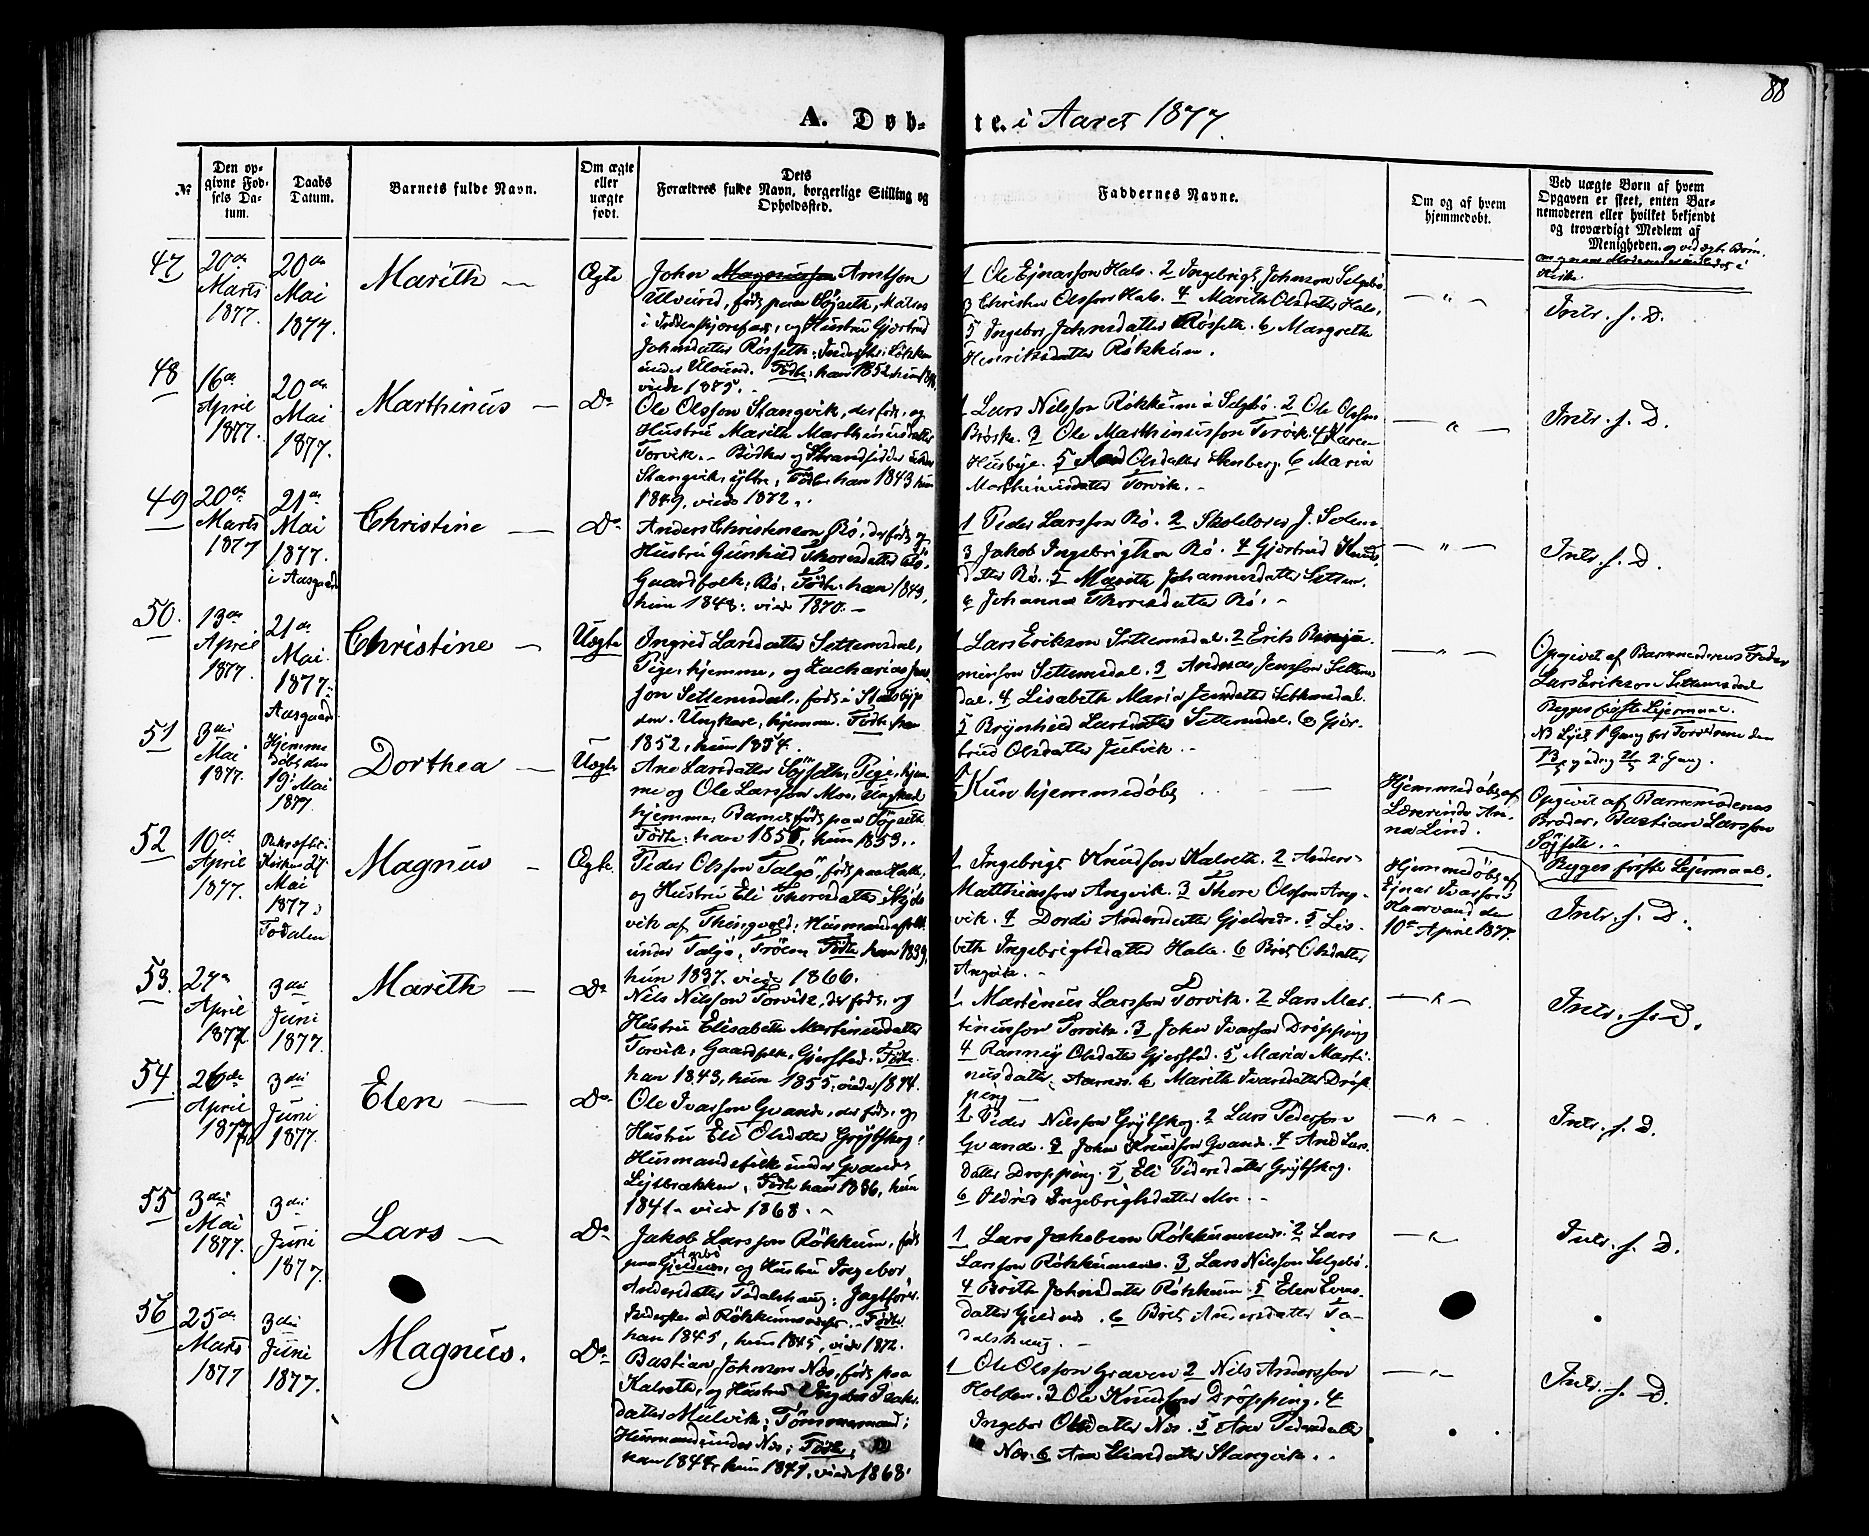 88
A. Døb- te. i Aaret 1877.
№
Den op-
givne Fød-
sels Da-
tum.
Daabs
Datum.
Barnets fulde Navn.
Om ægte
eller
uægte
født.
Dets
Forældres fulde Navn, borgerlige Stilling og
Opholdssted.
Faddernes Navne.
Om og af hvem
hjemmedøbt.
Ved uægte Børn af hvem
Opgaven er skeet, enten Bar-
nemoderen eller hvilket bekjendt
og troværdigt Medlem af
Menigheden. og ved ægt. Børn
47
20de
Marts
1877.
20de
Mai
1877.
Marith —
Ægte
John Magnusson Arntson
Ulvund, født paa Söjseth,
og Hustru Gjertrud
Johnsdatter Røsseth,
under Ulvund. Födte: han 1852, hun
viede 1875.
1 Ole Ejnarsson Hals. 2 Ingebrigt Johnson Selgebö
3 Christen Olsson Hals. 4 Marith Olsdatter Hals,
5 Ingebor Johnsdatter Røsseth. 6 Margrethe
Henriksdatter Røkkum.
— " —
Intr. f. D.
48
16de
April
1877.
20de
Mai
1877.
Marthinus —
Do
Ole Olsson Stangvik, der født, og
Hustru Marith Marthinusdatter
Torvik. – Bödker og Strandsidder under
Stangvik ÿttre, Födte: han 1843 hun
1849, viede 1872.
1 Lars Nilsson Røkkum a Selgebö. 2 Ole Olsson
Brøske. 3 Ole Marthinusson Torvik. 4 Karen
Husbye. 5 Olsdatter Stenberg. 6 Maria
Marthinusdatter Torvik. –
— " —
Intr. f. D.
49
20de
Marts
1877
21de
Mai
1877.
i Aasgaard
Christine —
Do
Anders Christenson Bø, der født og
Hustru Gunhild Thoresdatter Bö,
Gaardfolk: Bö. Födte: han 1843,
hun 1848: viede 1870. –
1 Peder Larsson Bö. 2 Skolelærer J. Solem
3 Jakob Ingebrigtson Bö. 4 Gjertrud Knuds-
datter Bö. 5 Marith Johannesdatter Settem.
6 Johanna Thoresdatter Bö. –
— " —
Intr. f. D.
50.
13de
April
1877.
21de
Mai
1877.
Aasgaard
Christine —
Uægte
Ingrid Larsdatter Settemsdal,
Pige, hjemme, og Zacharias Jens-
son Settemsdal, født i
Ungkarl, hjemme. Födte: han
1852, hun 1854.
1 Lars Erikson Settemsdal. 2 Erik Benja-
minson Settemsdal. 3 Andreas Jensson Settems-
dal. 4 Lisabeth Maria Jensdatter Settemsdal.
5 Brynhild Larsdatter Settemsdal. 6 Gjer-
trud Olsdatter Julvik. –
— " —
Opgivet af Barnemoderens Fader
Lars Erikson Settemsdal
Begges første Lejermaal.
51
3die
Mai
1877.
Hjemme
døbt den
19de Mai
1877.
Dorthea —
Uægte
Ane Larsdatter Söjseth, Pige, hjem-
me og Ole Larsson Moe, Ungkarl
hjemme, Barnet født paa Söjseth.
Födte: han 1855, hun 1853.
Kun hjemmedøbt — —
Hjemmedøbt af
Lærerinde An-
na Lind.
Opgivet af Barnemoderens
Broder, Bastian Larsson
Söjseth.
Begges første Lejermaal.
52
10de
April
1877.
Bekræftet i
Kirken 27
Mai
1877 i
Todalen
Magnus —
Ægte.
Peder Olsson Talgö, født paa Halle,
og Hustru Eli Thoresdatter
vik af Thingvold: Husmandsfolk
under Talgö, Trøen. Födte han 1839,
hun 1837. viede 1866.
1. Ingebrigt Knudson Kalseth. 2 Anders
Matthiasson Angvik. 3 Thore Olsson Ang-
vik. 4 Dordi Andersdatter Gjeldnes. 5 Lis-
beth Ingebrigtsdatter Halle. 6 Brit Olsdatter
Angvik. –
Hjemmedøbt af
Ejnar Ivarson
Kaarvand den
10de April 1877.
Intr. f. D.
53.
27de
April
1877
3die
Juni
1877.
Marith —
Do
Nils Nilsson Torvik, der født, og
Hustru Elisabeth Martinusdatter
Torvik, Gaardfolk, Gjersted. Födte
han 1843, hun 1855, viede 1874.
1. Martinus Larsson Torvik. 2 Lars Mar-
tinusson Torvik. 3 John Ivarson Dröpping
4 Rannei Olsdatter Gjersted. 5 Maria Marti-
nusdatter, Aarnes. 6 Marith Ivarsdatter Dröp-
ping —
— " —
Intr. f. D.
54.
26de
April
1877
3die
Juni
1877.
Elen —
Do
Ole Ivarson Qvande, der født, og
Hustru Eli Olsdatter Grÿtskog:
Husmandsfolk under Qvande
Födte han 1836, hun
1841 – viede 1868. –
1. Peder Nilsson Grÿtskog. 2 Lars Pederson
Qvande. 3 John Knudson Qvande. 4 Ane Lars-
datter Dropping. 5 Eli Pedersdatter Grÿtskog.
6 Ildrid Ingebrigtsdatter Moe. –
— " —
Intr. f. D.
55
3die
Mai
1877.
3die
Juni
1877.
Lars —
Do
Jakob Larsson Rökkum, født
paa Gjeldnes, og Hustru Ingebor
Andersdatter Todalshaug: Jagtförer
Inderster Rökkumsnes. – Födte
han 1845, hun 1845, viede 1872.
1 Lars Jakobson Rökkumsnes. 2 Lars
Larsson Rökkumsnes. 3 Lars Nilsson Selgebö.
4 Brith Johnsdatter Rökkum. 5 Elen Evens-
datter Gjeldnes. 6 Brit Andersdatter To-
dalshaug. –
— " —
Intr. f. D.
56
25de
Marts
1877
3die
Juni
1877.
Magnus.
Do
Bastian Johnson Næs, født paa
Kalseth, og Hustru Ingebor Isaks-
datter Mulvik: Tömmermand:
Husmand under Næs: Födte,
han 1844 hun 1847, viede 1868.
1 Ole Olsson Graven 2 Nils Andersson
Holten. 3 Ole Knudson Dröpping. 4
Ingebor Olsdatter Næs. 5 Ane Pedersdatter
Næs. 6 Ane Eliasdatter Stangvik. –
— " —
Intr. f. D.